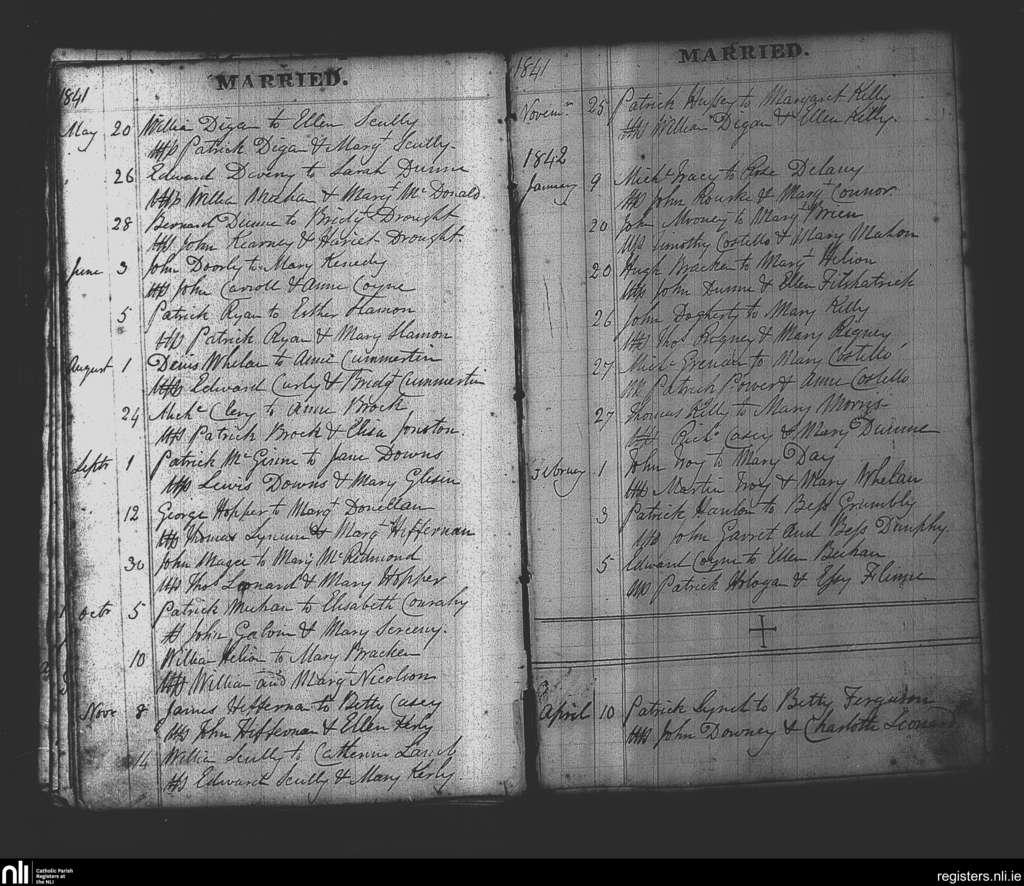 MARRIED.
1841
May 20 Willia Digan to Ellen Scully
Wss Patrick Digan & Margt Scully.
26 Edward Deveny to Sarah Dunne
Wss Willia Meehan & Margt McDonald
28 Bernard Dunne to Bridgt Drought
Wss John Kearney & Hariet Drought.
June 3 John Doorly to Mary Kenedy
Wss John Carroll & Anne Coyne
5 Patrick Ryan to Esther Hamon
Wss Patrick Ryan & Mary Hamon
August 1 Denis Whelan to Anne Cummertin
Wss Edward Curly & Bridgt Cummertin
24 Michl Clery to Anne Brock
Wss Patrick Brock & Elisa Jonston.
Septr 1 Patrick McGinne to Jane Downs
Wss Lewis Downs & Mary
12 George Hopper to Margt Donellan
Wss Thomas & Margt Hiffernan
30 John Magee to Mary McRedmond
Wss Thos Leonard & Mary Hopper
Octr 5 Patrick Meehan to Elisabeth Conrahy
Ws John Galvin & Mary
10 Willia Helion to Mary Bracken
Wss Willian and Margt Nicolson
Novr 8 James Hiffernan to Betty Casey
Wss John Hiffernan & Ellen Kerly
14 Willia Scully to Catherine Lamb
Ws Edward Scully & Mary Kerly
MARRIED.
1841
Novem 25 Patrick Hussey to Margaret Kelly
Wss Willian Digan & Ellen Kelly.
1842
January 9 Michl Tracy to Rose Delany
Wss John Rourke & Mary Connor.
20 John Mooney to Mary Brien
Wss Timothy Costello & Mary Mahon
20 Hugh Bracken to Margt Helion
Wss John Dunne & Ellen Fitshatrick
26 John Dogherty to Mary Kelly
Wss Thos Rigney & Mary Rigney
27 Michl Grenan to Mary Costello
Ws Patrick Power & Anne Costello
27 Thomas Kelly to Mary Morris
Wss Richd Casey & Mary Dunne
Februry 1 John Troy to Mary Day
Wss Martin Troy & Mary Whelan
3 Patrick Hanlon to Bess Grumbly
Wss John Garret and Bess Dunphy
5 Edward Coyne to Ellen Beehan
Wss Patrick Hologan & Essy
April 10 Patrick Lynch to Betty Ferguson
Wss John Downey & Charlotte Leonard
nli
Catholic Parish
Registers at
the NLI
registers.nli.ie